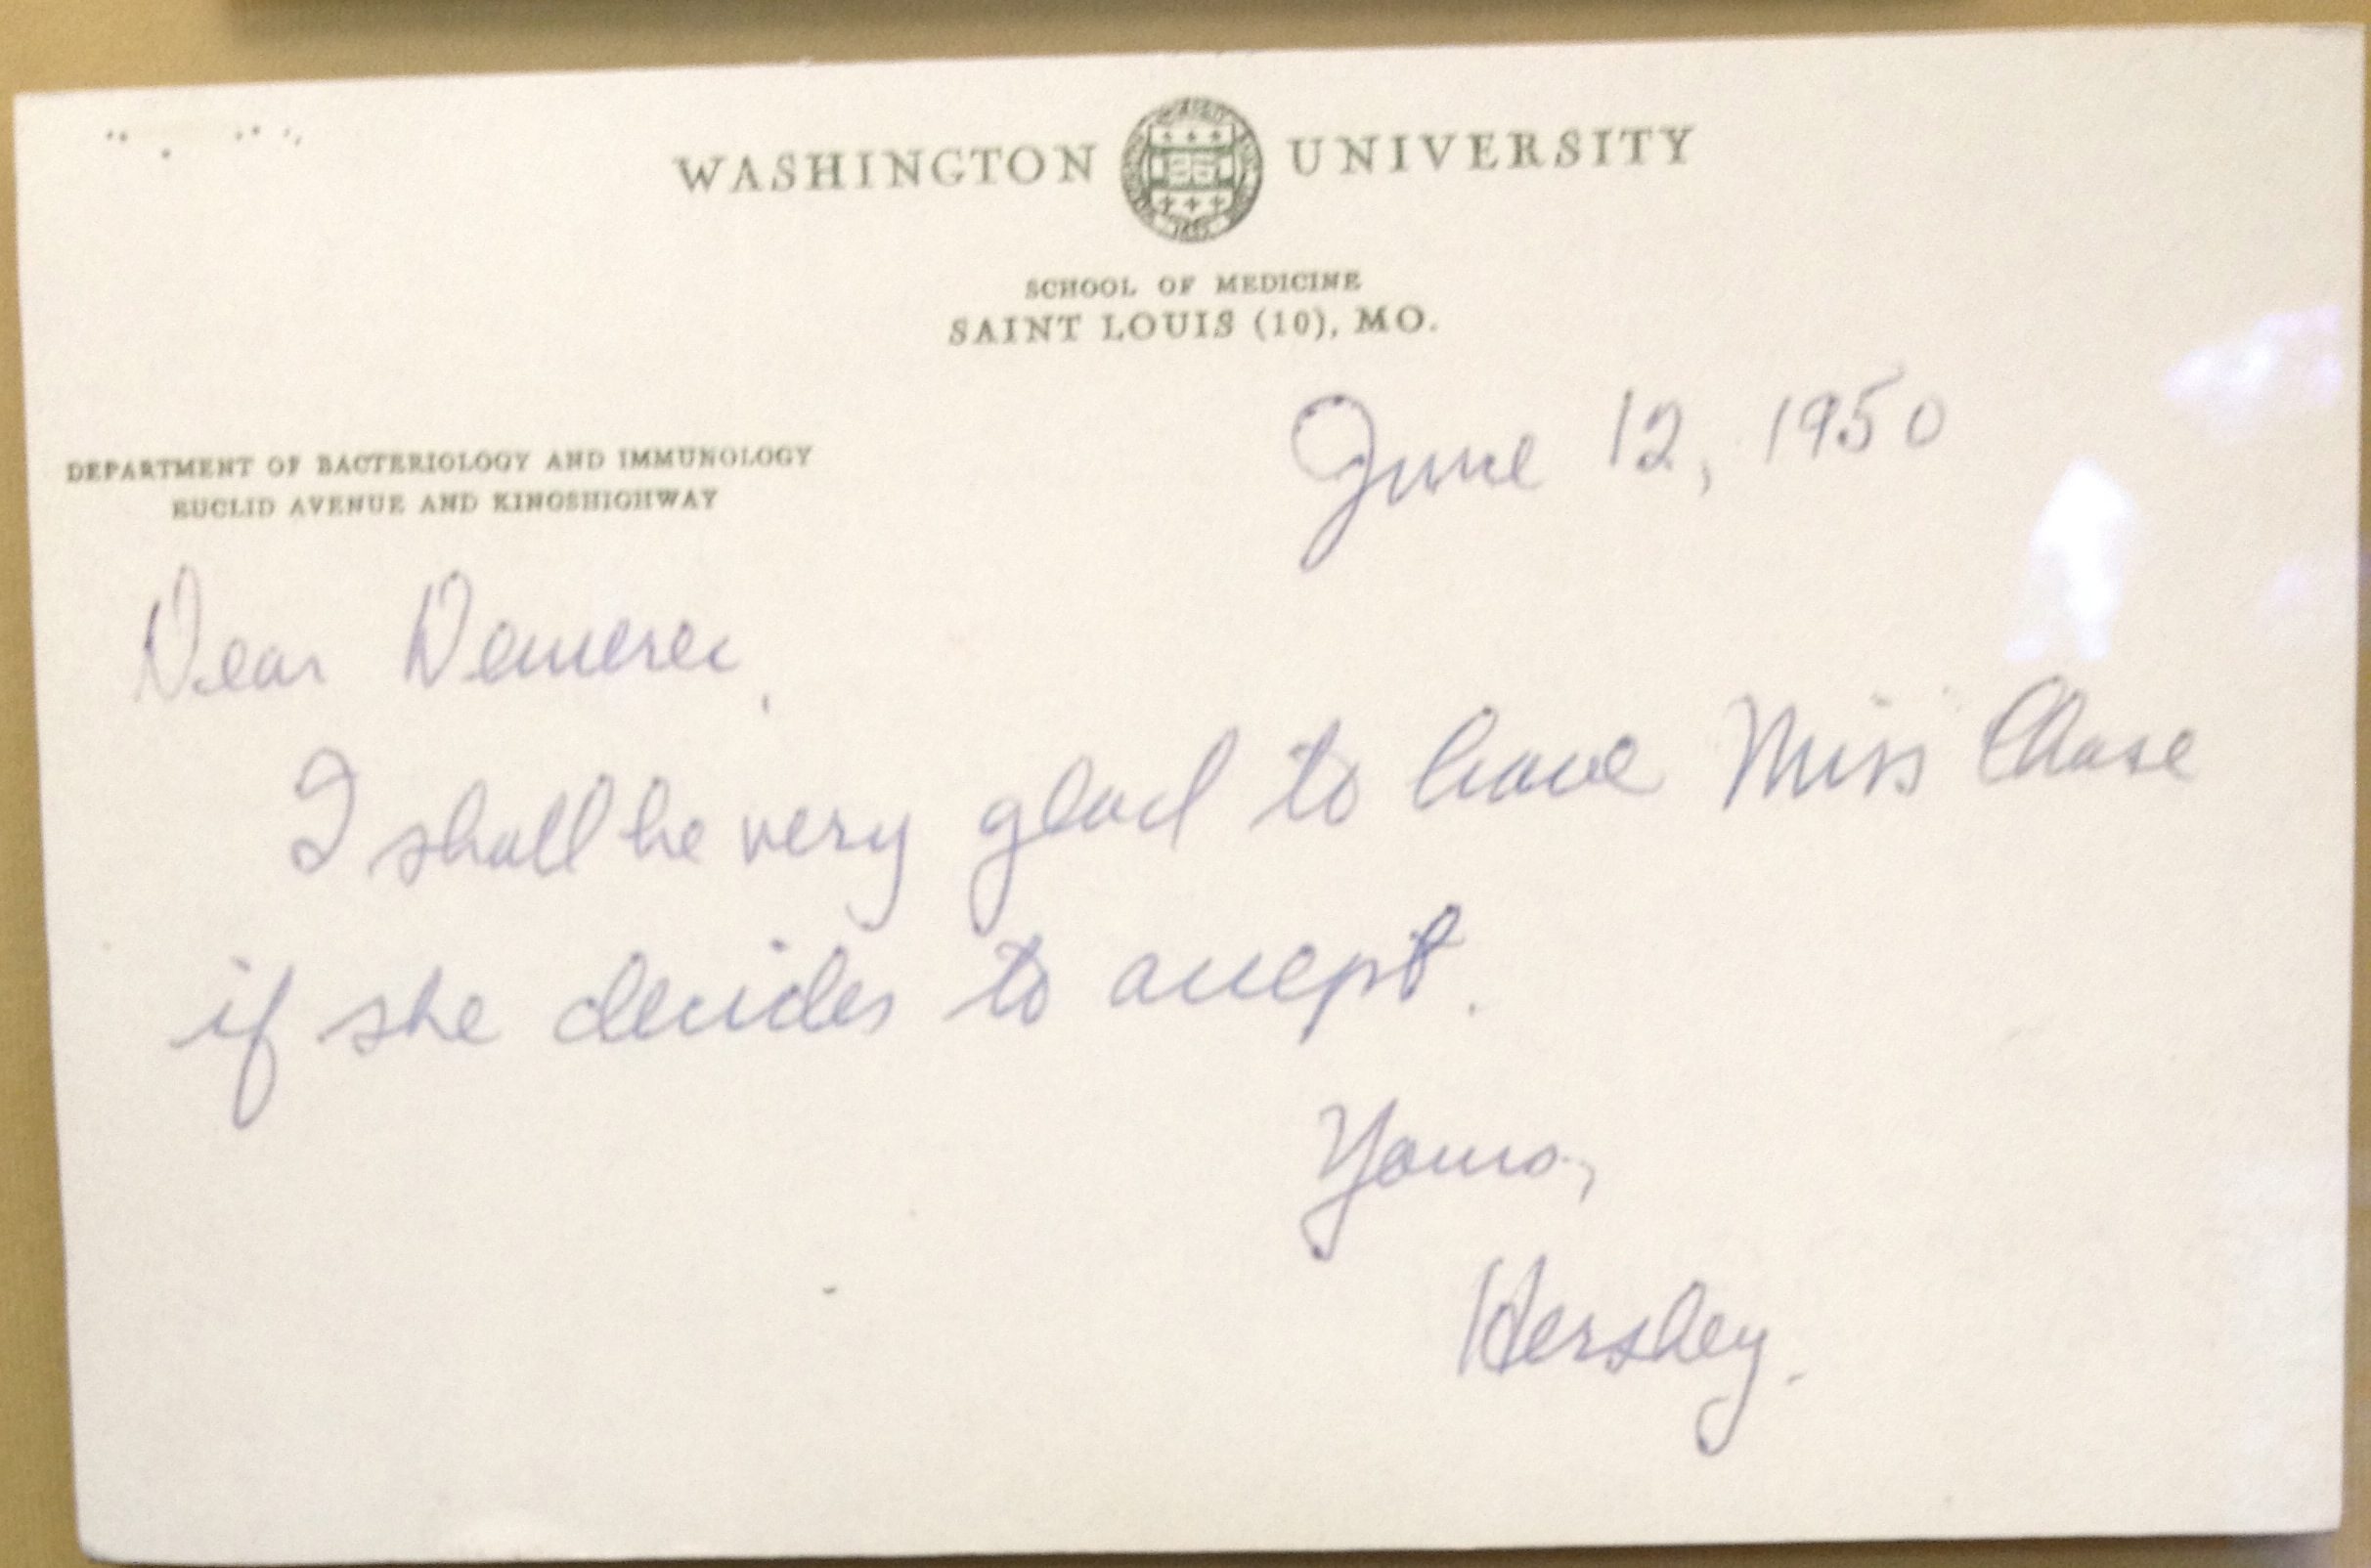 WASHINGTON UNIVERSITY
SCHOOL OF MEDICINE
SAINT LOUIS (10), MO.
June 12, 1950
DEPARTMENT OF BACTERIOLOGY AND IMMUNOLOGY
EUCLID AVENUE AND KINGSHIGHWAY
Dear Demerec,
I shall be very glad to have Miss Chase
if she decides to accept.
Yours,
Hershey.